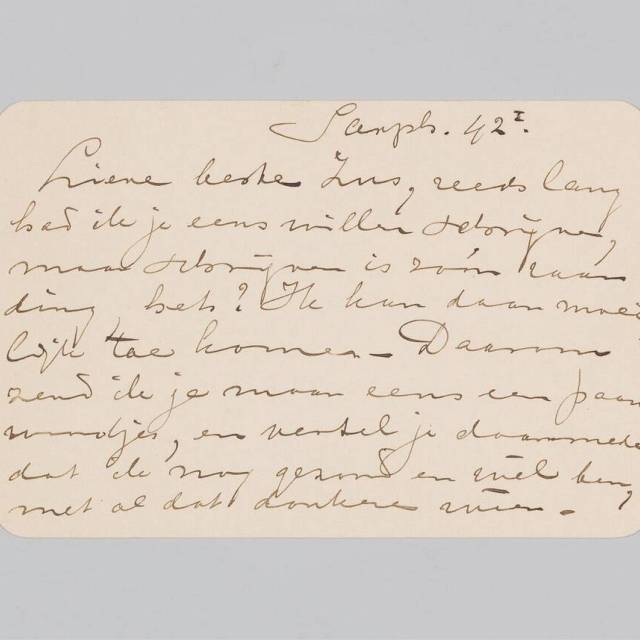 Sarph. 42 I.
Lieve beste Zus, reeds lang
had ik je eens willen schrijven,
maar schrijven is zo'n raar
ding, hè? Ik kan daar moei
lijk toe komen. — Daarom
zend ik je maar eens een paar
woordjes, en vertel je daarmede
dat ik nog gezond en wel ben,
met al dat donkere weer. —